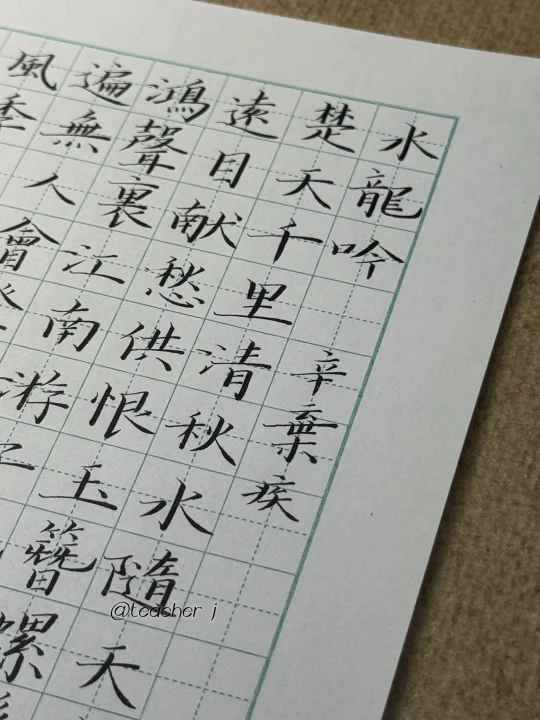 水龍吟 辛棄疾
楚天千里清秋水隨天
遠目献愁供恨玉簪螺
鴻聲裏江南游子
遍無人會
風
@teacher j